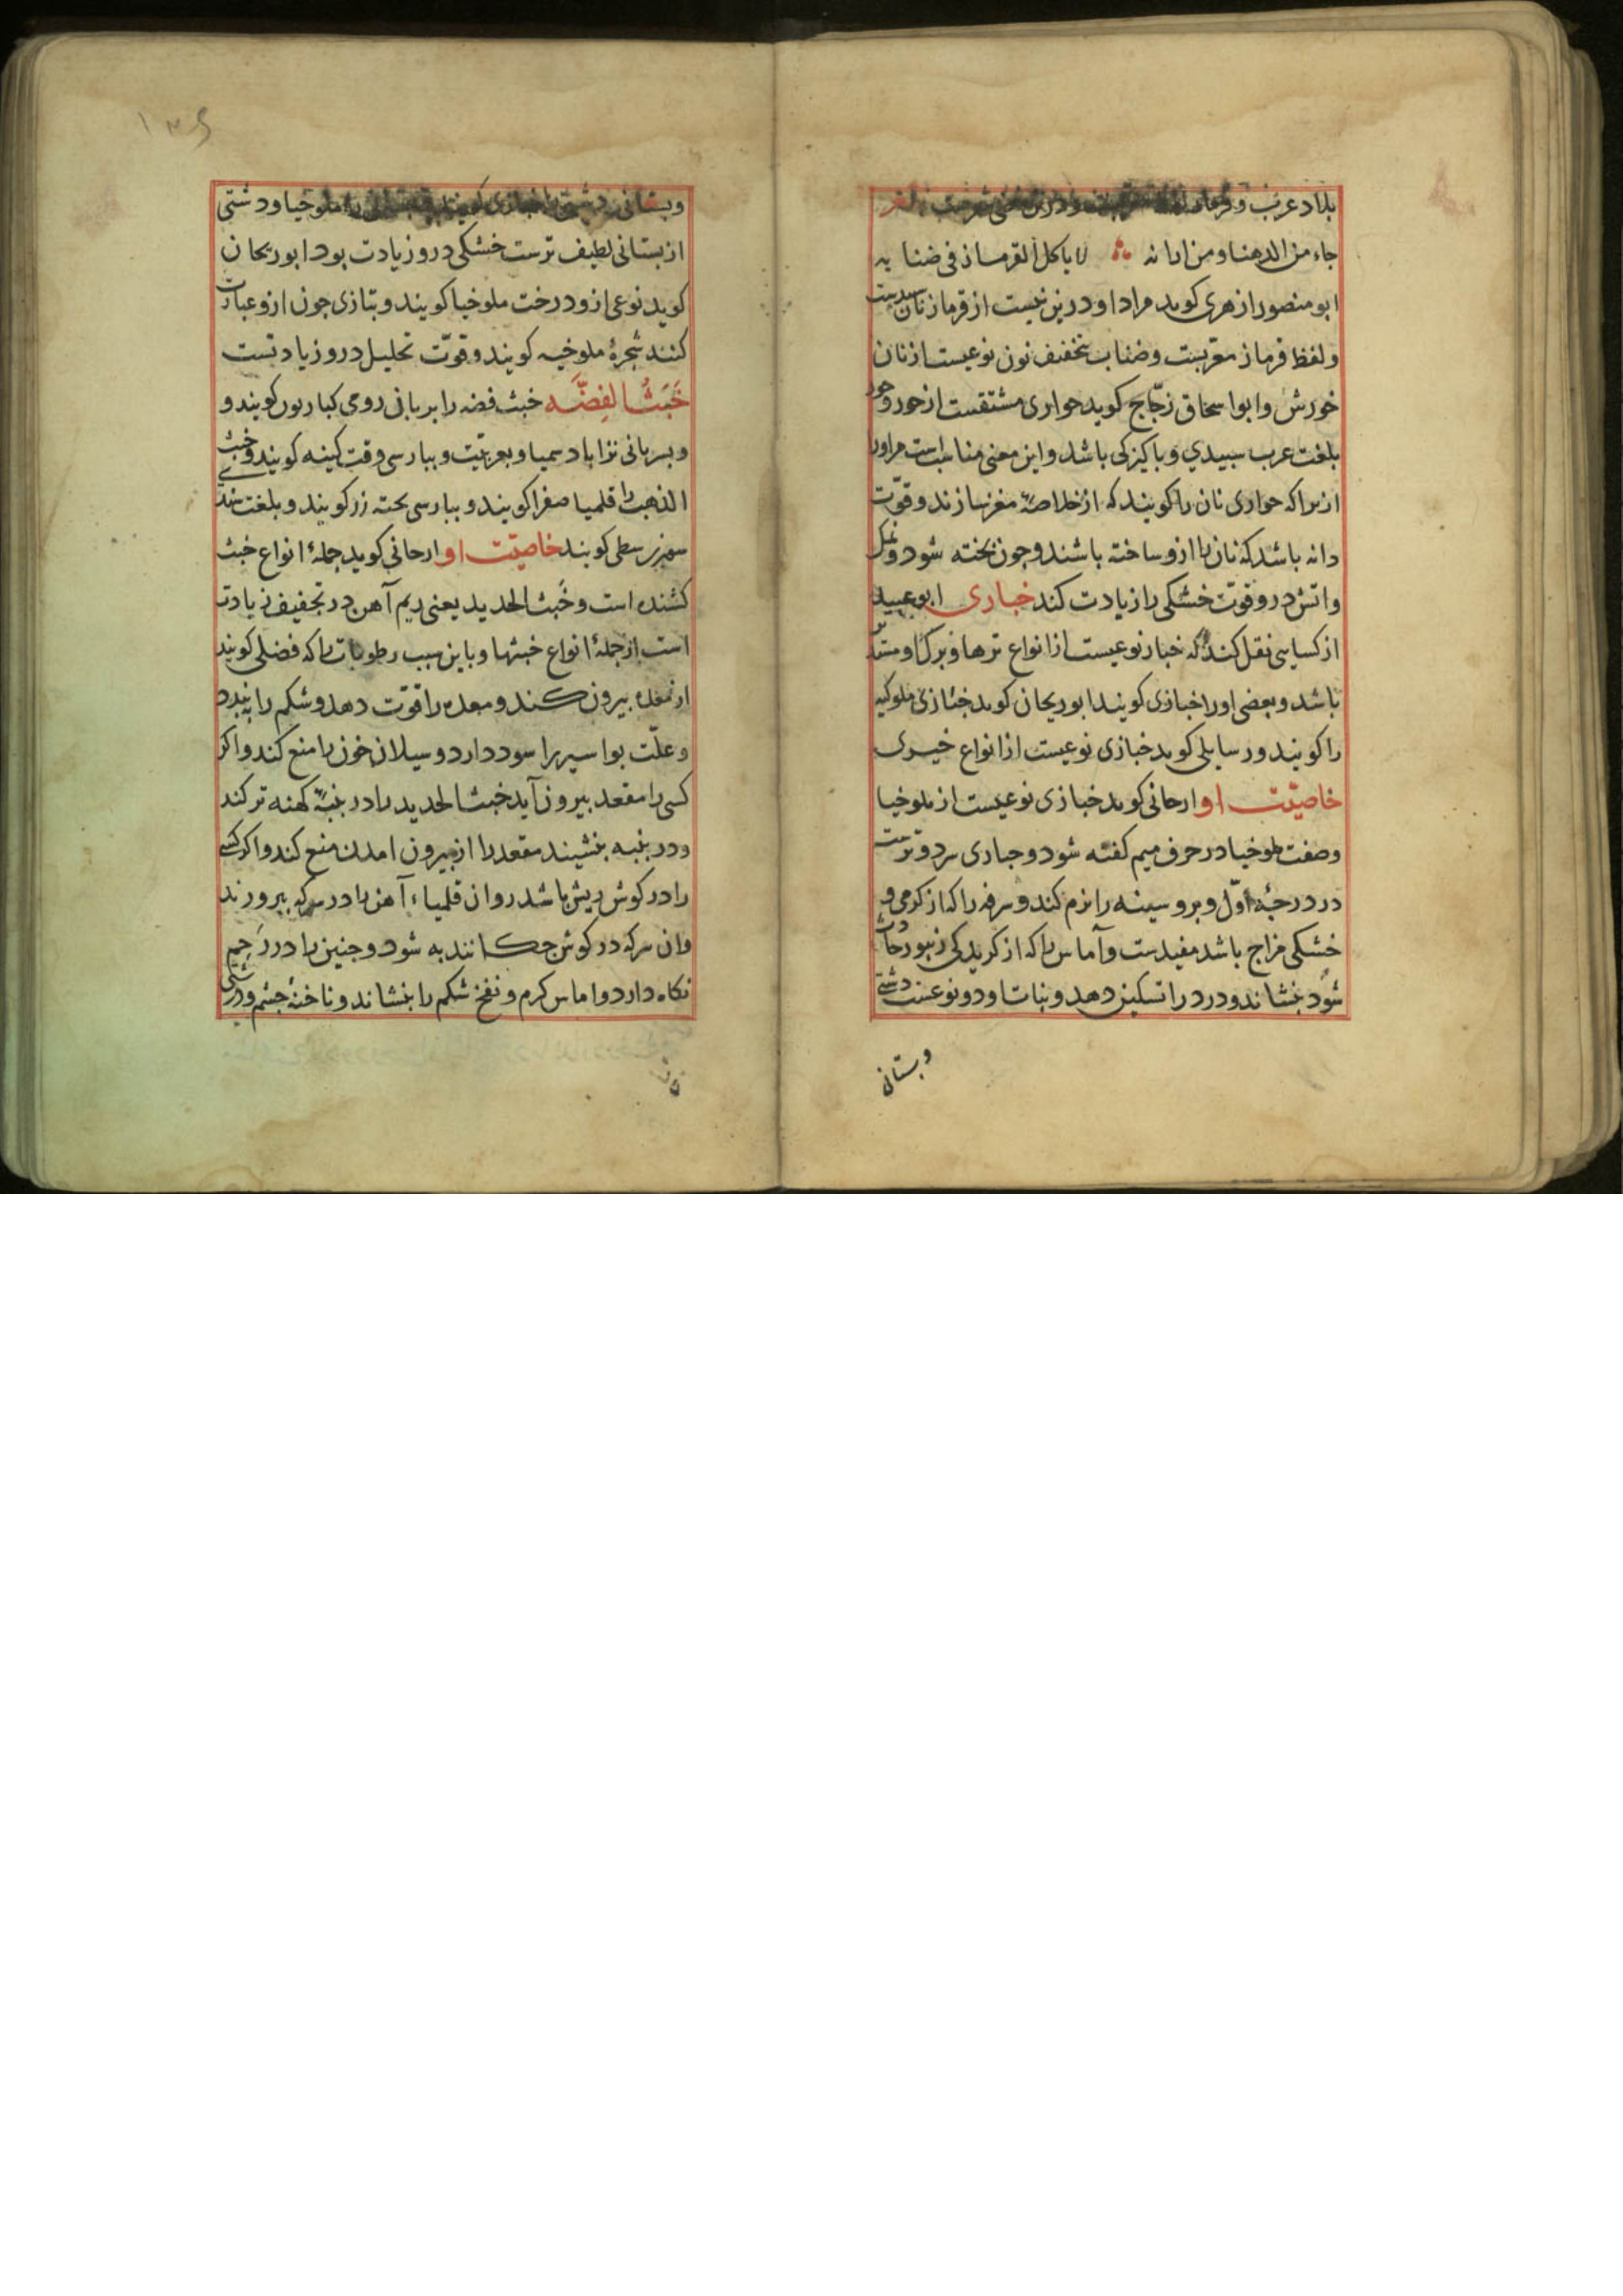 بلاد عرب و
جاء من الدهنا و من ارانه لا یاکل القرماز فی ضنابه
ابو منصور ازهری کوید مراد او درین بیت از قرماز نان سپیدست
و لفظ قرماز معربست و ضناب بتخفیف نون نوعیست از نان
خورش و ابو اسحاق زجّاج کوید حواری مشتقست از حور و حور
بلغت عرب سبیدی و باکیزکی باشد و این معنی مناسب است مر اورا
از برا که حواری نان را کویند که از خلاصهٔ مغز سازند و قوّت
دانه باشد که نان را ازو ساخته باشند و جون بخته شود و نمک
و اتش درو قوت خشکی را زیادت کند خبازی ابو عبید
از کسایی نقل کند که خباز نوعیست از انواع ترها و برک او مستدیر
باشد و بعضی اورا خبازی کویند ابو ریحان کوید خبّازی ملوکیه
را کویند و رسایلی کوید خبازی نوعیست از انواع خیری
خاصیّت او ارجانی کوید خبازی نوعیست از ملوخیا
وصفت ملوخیا در حرف میم کفته شود و خبازی سرد و ترست
در درجهٔ اوّل و برو سینه را نرم کند و سرفه را که از کرمی و
خشکی مزاج باشد مفیدست و آماس را که از کزیدکی زنبور حادث
شود بنشاند و درد را تسکین دهد و نبات او دو نوعست دشتی
و بستانی
۱۳۶
و بستانی دشتی را خبازی کویند و بستانی را ملوخیا و دشتی
از بستانی لطیف ترست خشکی درو زیادت بود ابو ریحان
کوید نوعی ازو درخت ملوخیا کویند و بتازی جون ازو عبارت
کنند شجرهٔ ملوخیه کویند و قوّت تحلیل درو زیادتست
خَبَثُ الفِضَّه خبث فضه را بر بانی رومی کویند و
و بسریانی و بعربیّت و ببارسی کویند و خبث
الذهب را قلمیا صفرا کویند و ببارسی زر کویند و بلغت هندی
کویند خاصیّت او ارجانی کوید جملهٔ انواع خبث
کشنده است و خَبث الحدید یعنی ریم آهن در تجفیف زیادت
است از جملهٔ انواع خبثها و باین سبب رطوبات را که فضلی کویند
از معده بیرون کند و معده را قوّت دهد و شکم را ببندد
و علّت بواسیر را سود دارد و سیلان خون را منع کند و اکر
کسی را مقعد بیرون آید خبث الحدید را در بنبهٔ کهنه تر کند
و در بنبه بنشیند مقعد را از بیرون امدن منع کند و اکر کسی
را در کوش ریش باشد روان قلمیاء آهن را در سرکه ببرورند
و ان سرکه در کوش جکانند به شود و جنین را در رَحِم
نکاه دارد و اماس کرم و نفخ شکم را بنشاند و ناخنهٔ جشم و درشتی